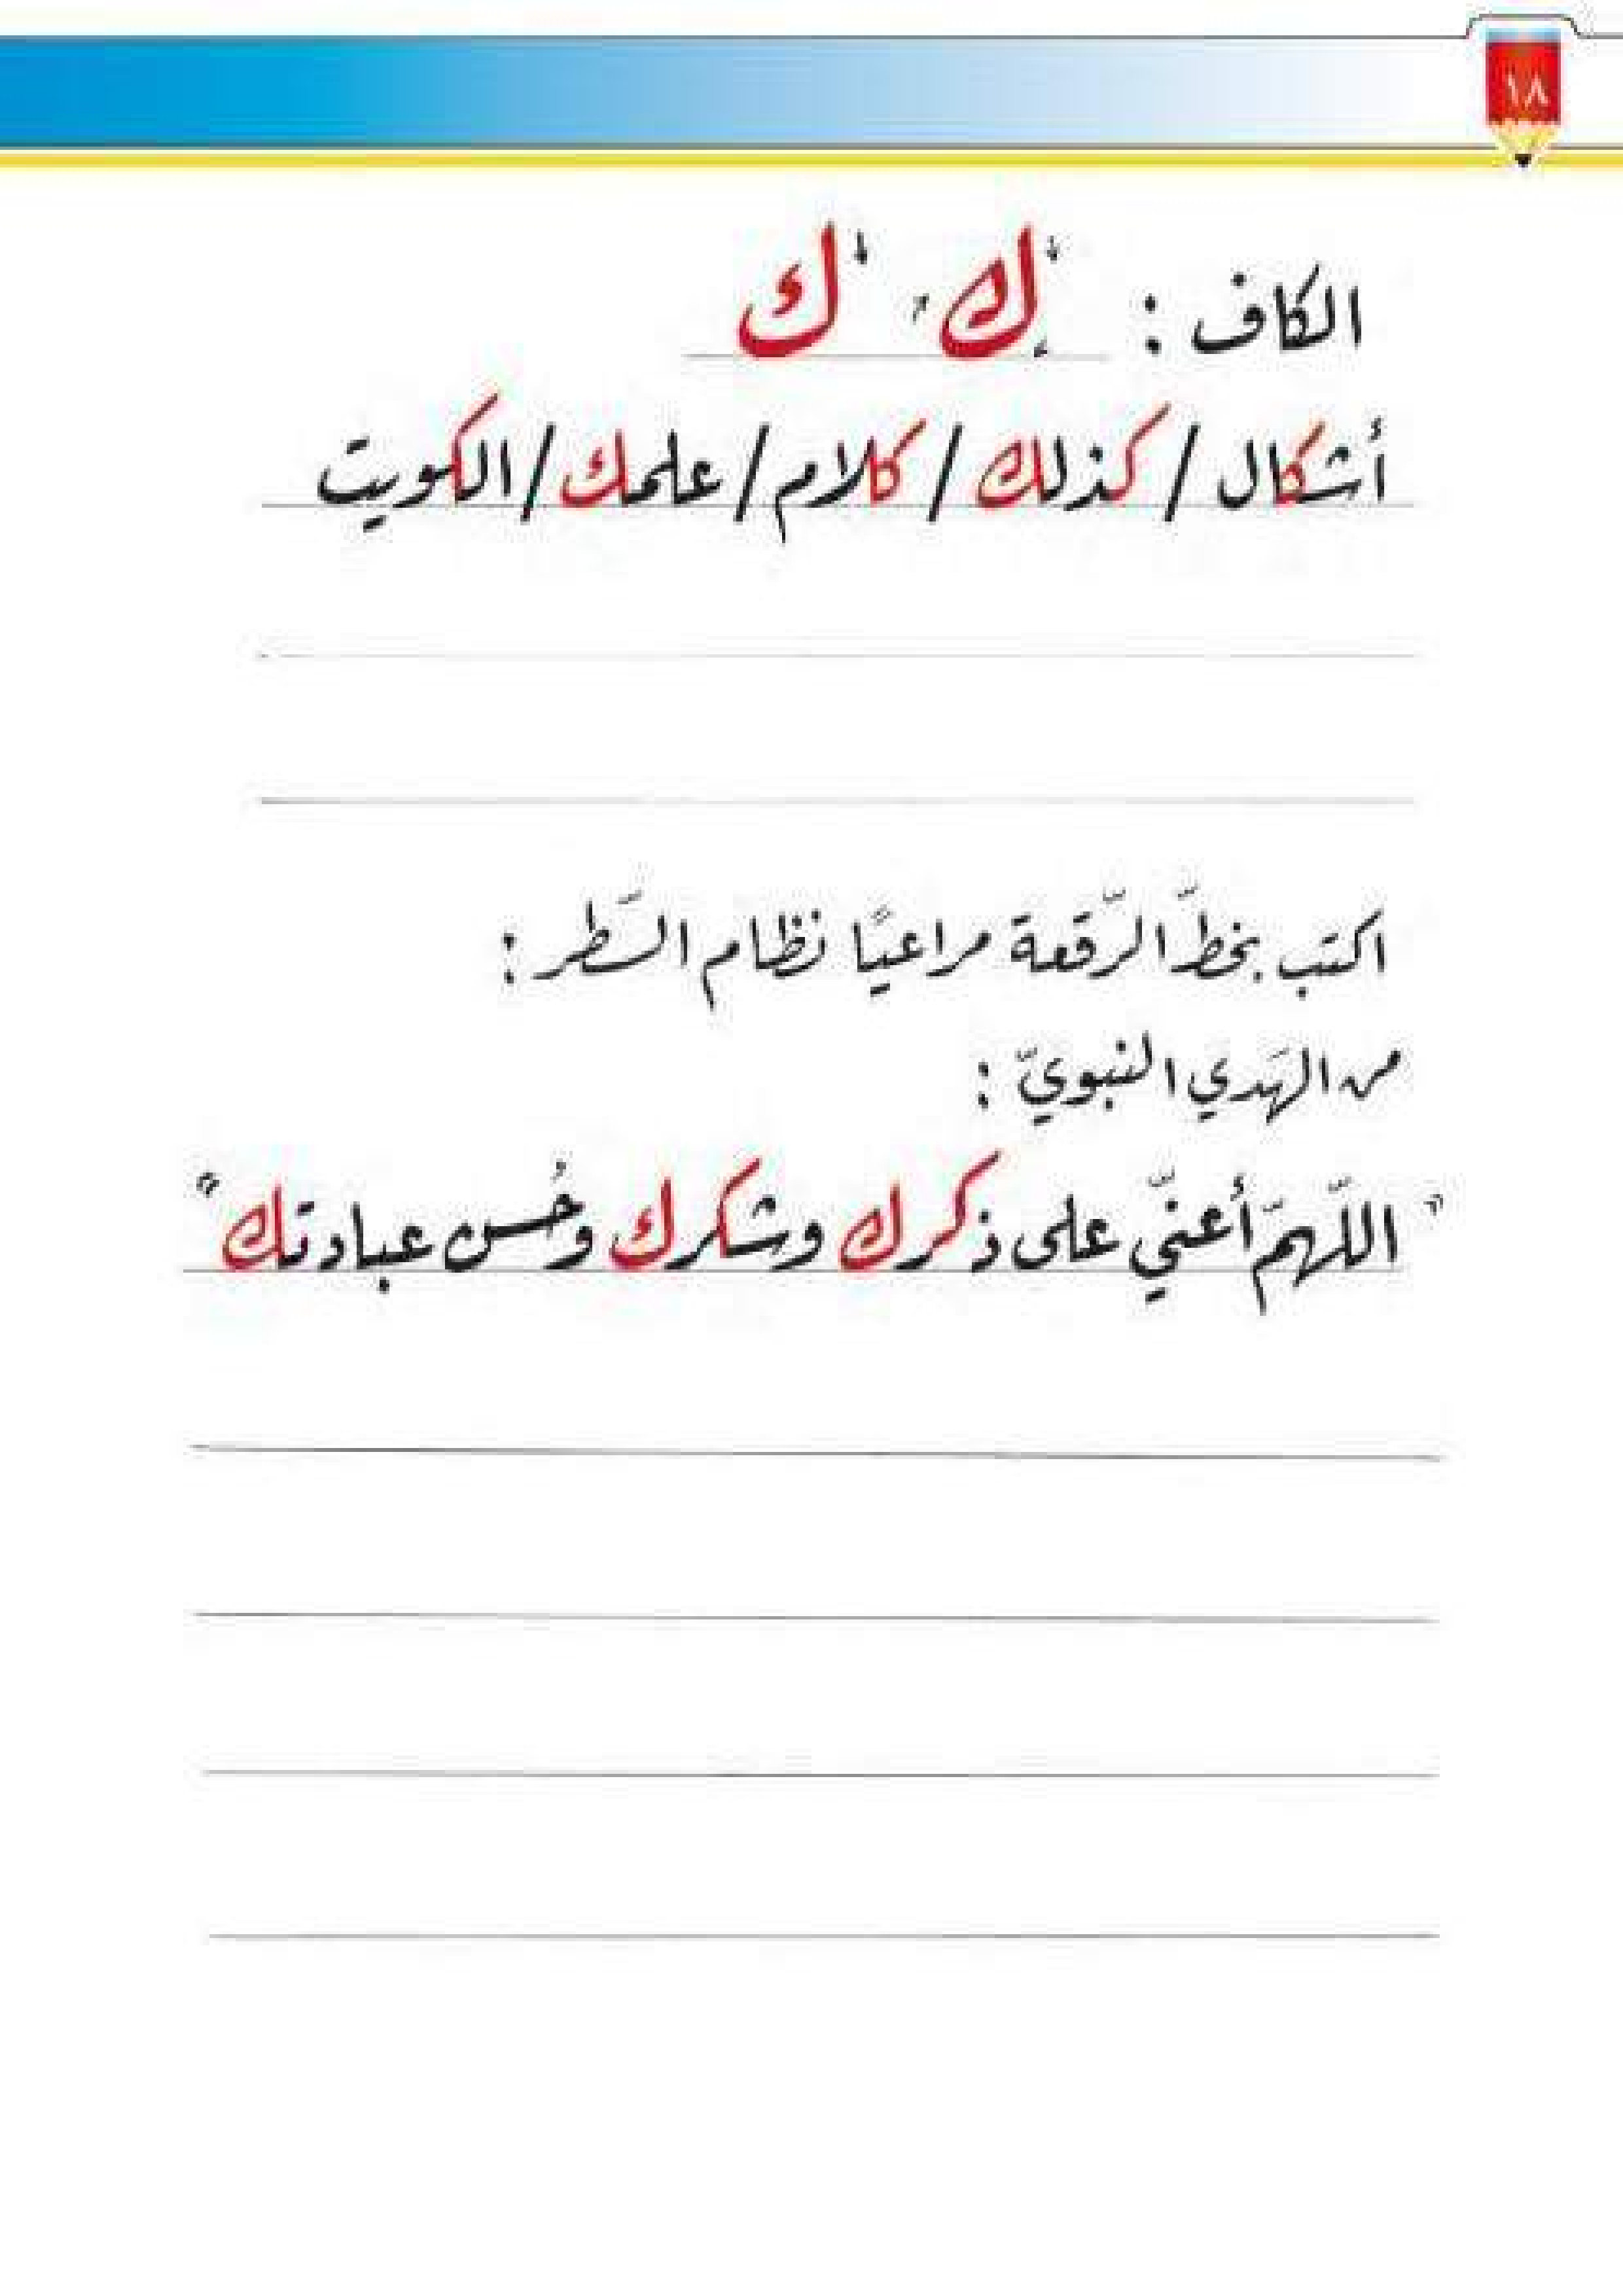 ١٨
الكاف : ك ك
أشكال / كذلك / كلام / علمك / الكويت
اكتب بخطّ الرّقعة مراعيًا نظام السَّطر :
من الهَدي النبويّ :
" اللّهمّ أعنّي على ذكرك وشكرك وحُسن عبادتك "